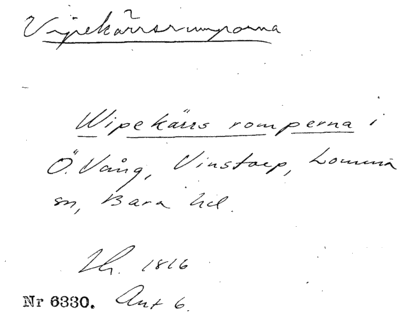 Vipekärrsrumporna
Wipekärrs romperna i
Ö. Vång, Vinstorp, Lomma
sn, Bara hd.
Lh. 1816
Nr 6330. Ant 6.